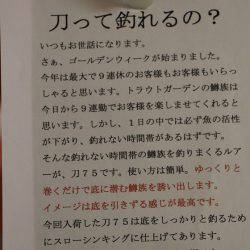 刀って釣れるの？
いつもお世話になります。
さぁ、ゴールデンウィークが始まりました。
今年は最大で９連休のお客様もお客様もいらっ
しゃると思います。トラウトガーデンの鱒族は
今日から９連勤でお客様を楽しませてくれると
思います。しかし、１日の中では必ず魚の活性
が下がり、釣れない時間帯があるはずです。
そんな釣れない時間帯の鱒族を釣りまくるルアー
が、刀７５です。使い方は簡単。ゆっくりと
巻くだけで底に潜む鱒族を誘い出します。
イメージは底を引きずる感じが最高です。
今回入荷した刀７５は底をしっかりと釣るため
にスローシンキングに仕上げてあります。